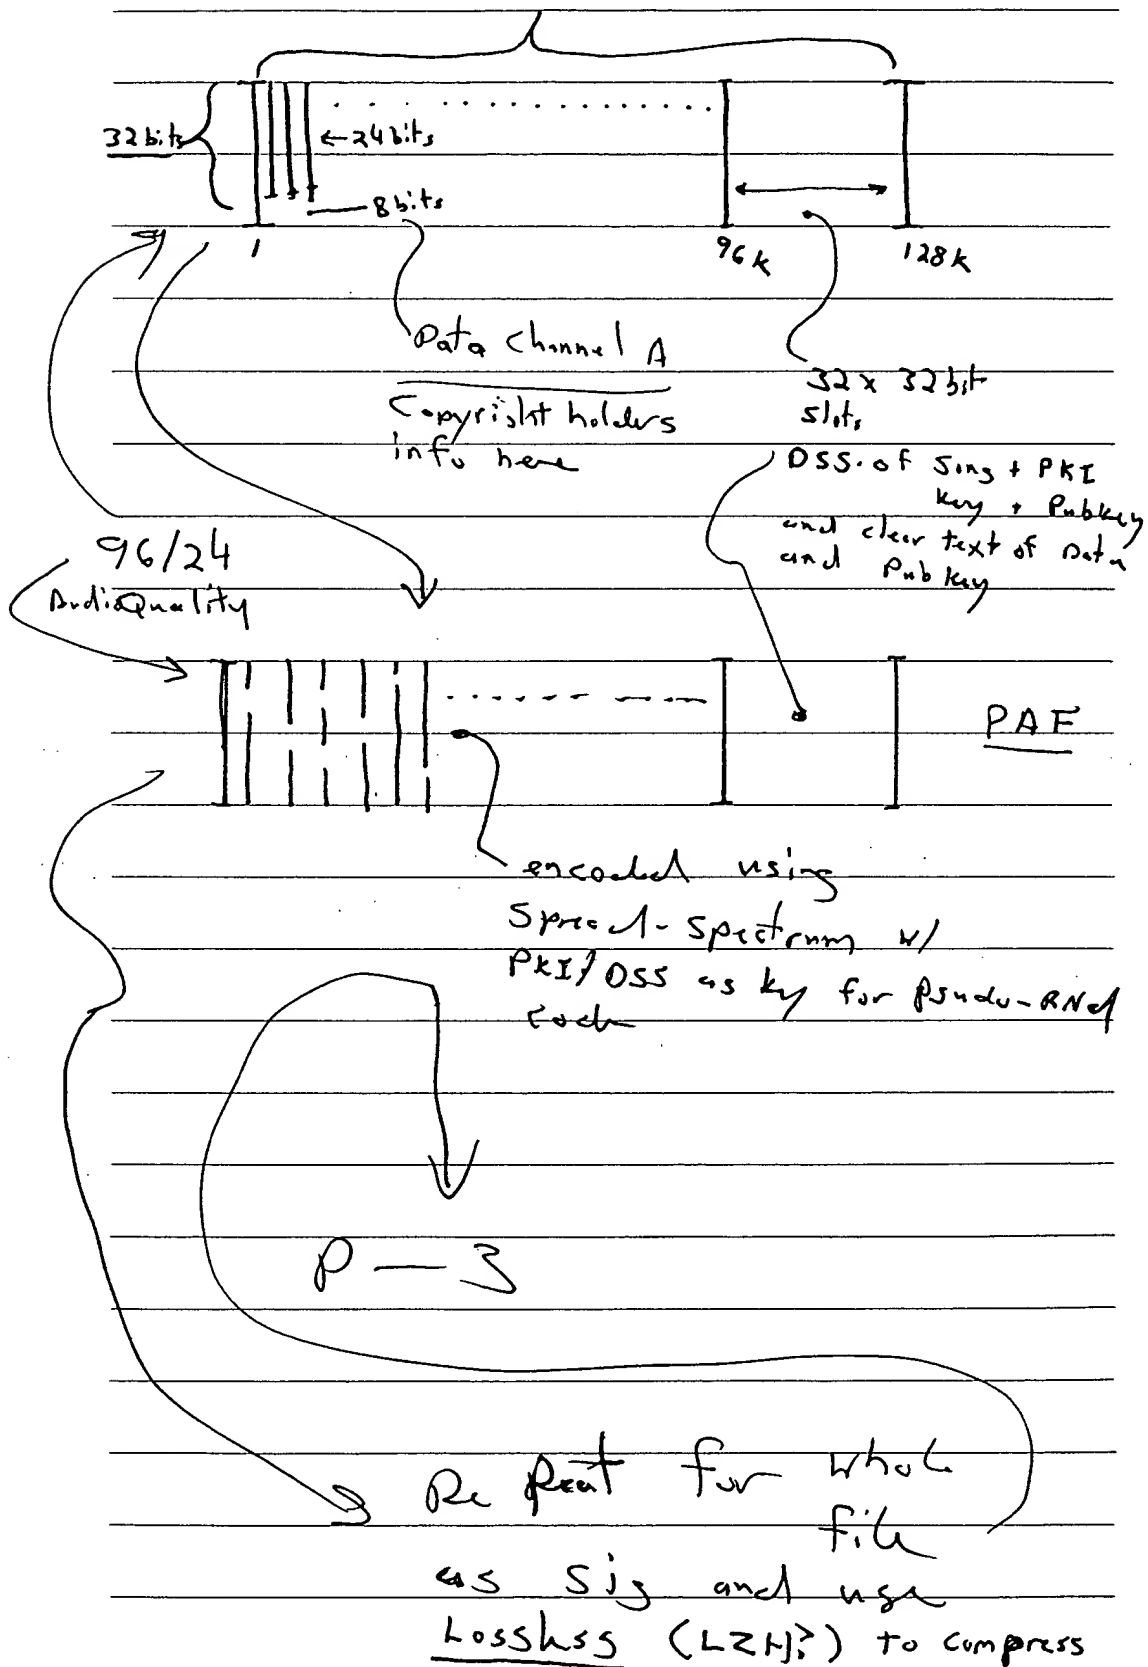 32 bits
←24 bits
8 bits
1
96k
128k
Data Channel A
Copyright holders
info here
32 x 32 bit
slots
DSS. of Song + PKI
Key + Pubkey
and clear text of Data
and Pub Key
96/24
AudioQuality
PAF
encoded using
Spread-Spectrum w/
PKI/DSS as key for Psudo-RNd
code
P — 3
Re Peat for whole
file
as Sig and use
Lossless (LZH?) to compress